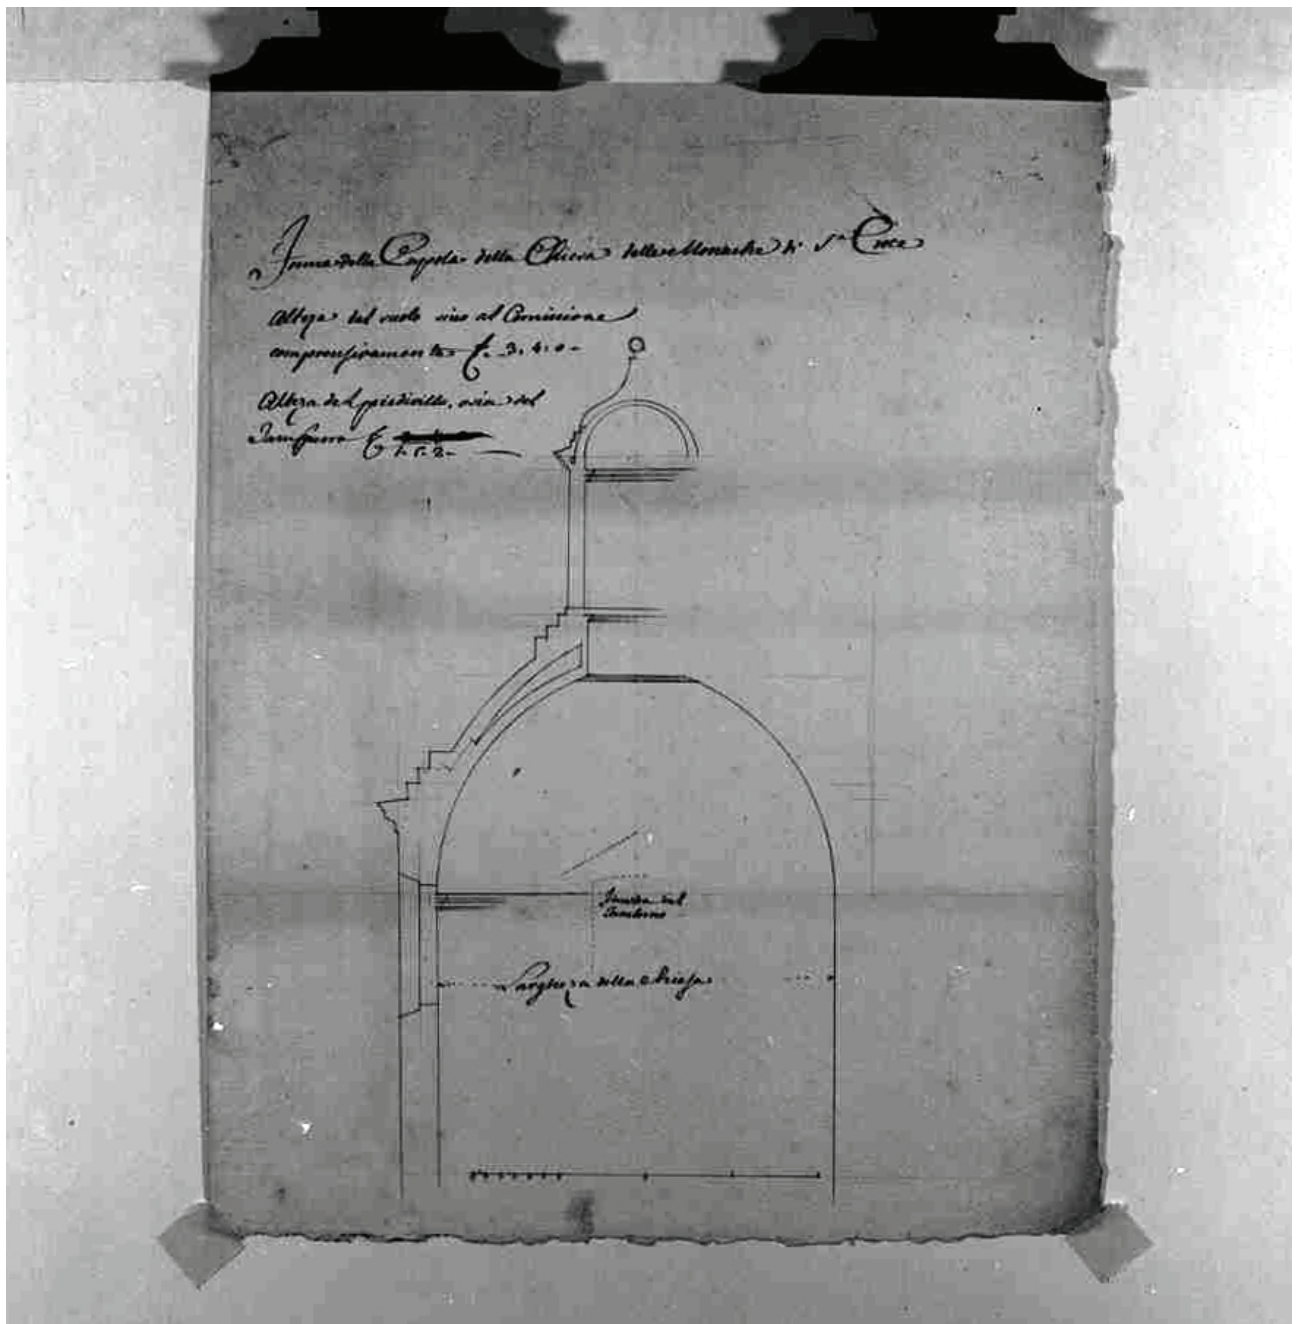 Forma della Cupola della Chiesa delle Monache di S.ᵃ Croce
Altezza dal suolo sino al Cornicione
comprensivamente T. 3. 4. 0 -
Altezza del piedivillo, osia del
T. 1. 5. 2 -
del
Larghezza della Chiesa